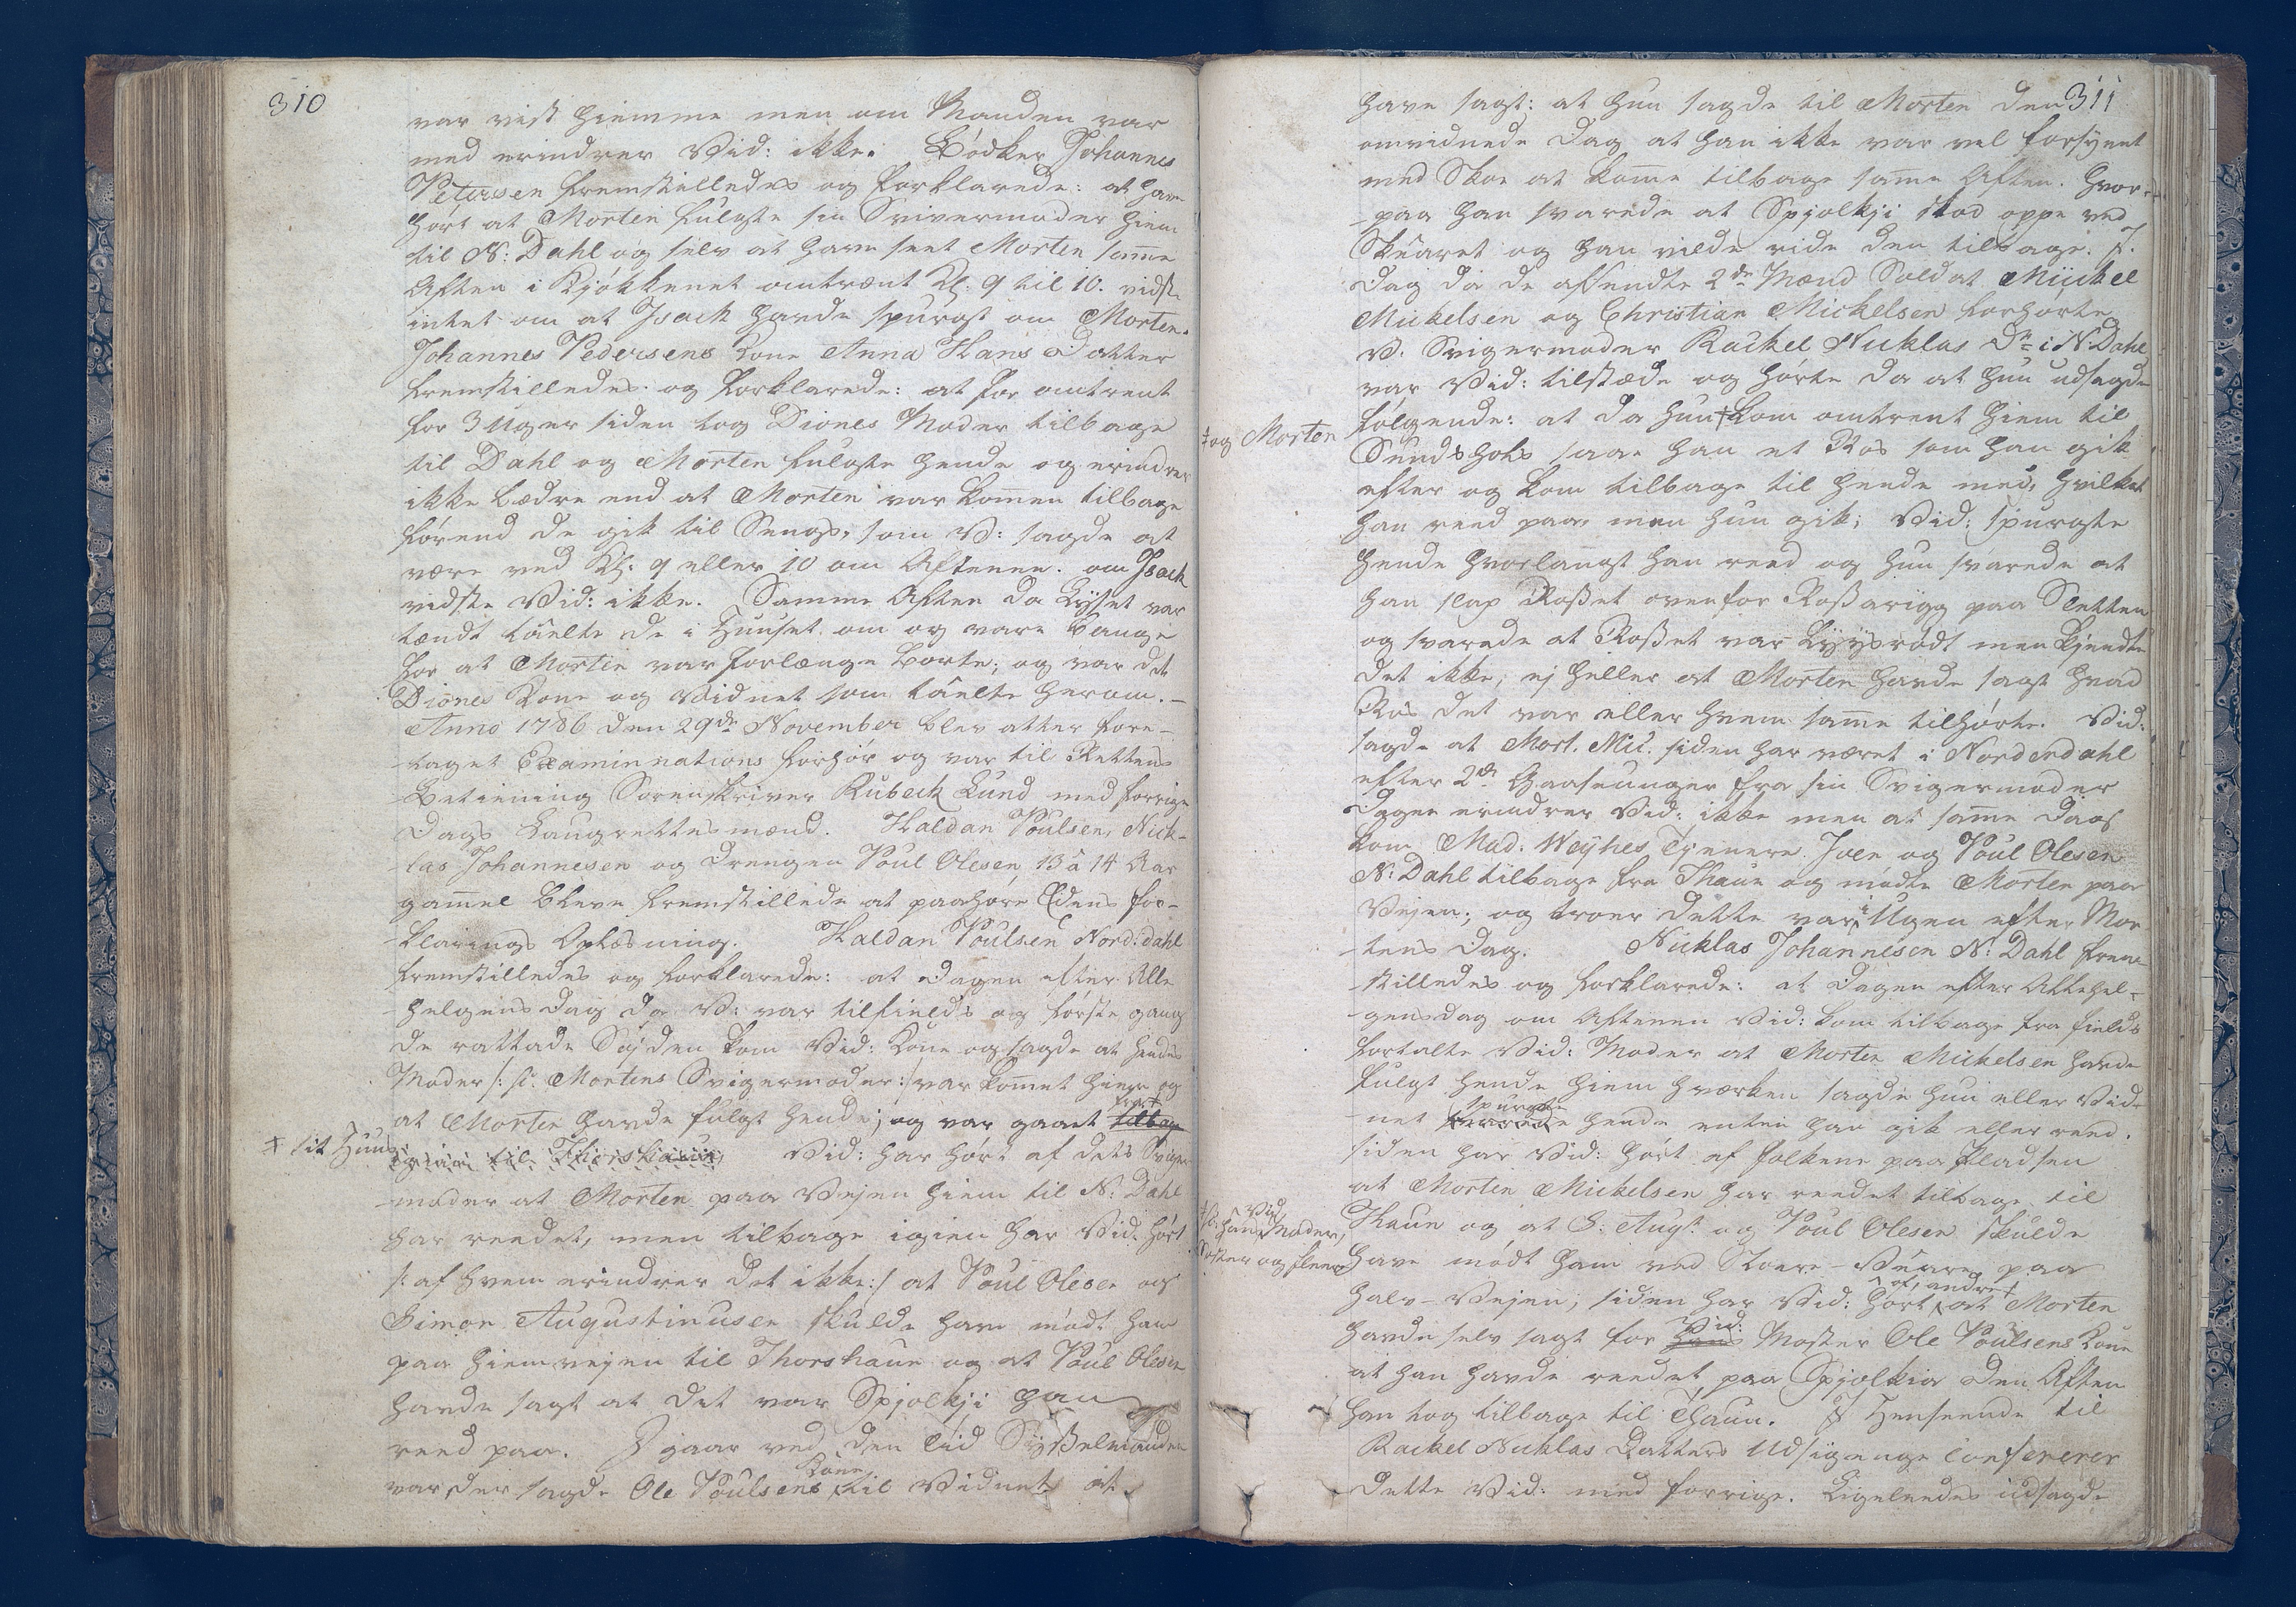 310
var vist hiemme men om Manden var
med erindrer Vid: ikke. Bödker Johannes
Petersen fremstilledes og forklarede: at have
hört at Morten fulgte sin Svivermoder hiem
til N: Dahl og selv at have seet Morten samme
Aften i Kjökkenet omtrent Kl: 9 til 10. vidste
intet om at Isach havde spurgt om Morten.
Johannes Pedersens Kone Anna Hans Datter
fremstilledes og forklarede: at for omtrent
for 3 Uger siden tog Diones Moder tilbage
til Dahl og Morten fulgte hende og erindrer
ikke bædre end at Morten var kommen tilbage
förend de gik til Sengs, som V: sagde at
være ved Kl: 9 eller 10 om Aftenen. om Isach
vidste Vid: ikke. Samme Aften da Lyset var
tændt talte de i Huuset om og vare bange
for at Morten var forlænge borte; og var det
Diones Kone og Vidnet som talte herom.—
Anno 1786 den 29de November blev atter fore-
-taget Examinnations Forhör og var til Rettens
Betiening Sorenskriver Rubech Lund med forrige
Dags Laugrettesmænd. Haldan Poulsen, Nick-
-las Johannesen og Drengen Poul Olesen 13 a 14 Aar
gammel bleve fremstillede at paahöre Edens For-
-klarings Oplæsning. Haldan Poulsen Nord:dahl
fremstilledes og forklarede: at Dagen efter Alle
-helgens Dag da V: var tilfields og förste gang
de rattade Söjden kom Vid: Kone og sagde at hendes
Moder /: sc: Mortens Svigermoder :/ var kommet hiem og
at Morten havde fulgt hende; og var gaaet tilbage
‡ sit Huus igien til Thorshaun Vid: har hört af dets Sviger-
-moder at Morten paa Vejen hiem til N: Dahl
har reedet, men tilbage igien har Vid: hört
/: af hvem erindrer det ikke :/ at Poul Olesen og
Simon Augustinusen skulde have mödt ham
paa hiemvejen til Thorshaun og at Poul Olesen
havde sagt at det var Spjolkji han
reed paa. I gaar ved den Tiid Sysselmanden
var der sagde Ole Poulsens Kone til Vidnet at
311
have sagt: at hun sagde til Morten den
omvidnede Dag at han ikke var vel forsynet
med Skoe at komme tilbage samme Aften. hvor-
-paa han svarede at Spjolkji stod oppe ved
Skúaret og han vilde ride den tilbage. I
Dag da de affendte 2de Mænd Soldat Mickel
Mickelsen og Christian Mickelsen forhörte
V. Svigermoder Rachel Nicklas Dr: i N. Dahl
var Vid: tilstæde og hörte da at hun udsagde
fölgende: at da hun ‡ kom omtrent hiem til
‡ og Morten
Sundshols saae han et Ros som han gik
efter og kom tilbage til hende med, hvilket
han reed paa, men hun gik; Vid: spurgte
hende hvorlangt han reed og hun svarede at
han slap Rosset ovenfor Rossarygg paa Sletten
og svarede at Rosset var Lysrödt men kjendte
det ikke, ej heller at Morten havde sagt hvad
Ros det var eller hvem samme tilhörte. Vid:
sagde at Mort. Mic. siden har været i Norderdahl
efter 2de Gaaseunger fra sin Svigermoder
Dagen erindrer Vid: ikke men at samme Dags
kom Mad. Weyhes Tjenere Joen og Poul Olesen
N: Dahl tilbage fra Thaun og mödte Morten paa
Vejen; og troer dette var i Ugen efter Mor-
-tens Dag. Nicklas Johannesen N: Dahl frem-
-stilledes og forklarede: at Dagen efter Allehel-
-gensdag om Aftenen Vid: kom tilbage fra fields
fortalte Vid: Moder at Morten Mickelsen havde
fulgt hende hiem hverken sagde hun eller Vid-
-net spurgte hende enten han gik eller reed.
siden har Vid: hört af Folkene paa Pladsen
at Morten Mickelsen har reedet tilbage til
Thaun og at S: Augst: og Poul Olesen skulde
Vid: Moder,
Söster og fleere
have mödt ham ved Stoere-Väre paa
halv-Vejen; siden har Vid: hört af andre at Morten
havde selv sagt for Vid: Moster Ole Poulsens Kone
at han havde reedet paa Spjolkia den Aften
han tog tilbage til Thaun. I Henseende til
Rachel Nicklas Datters Udsigende Confererer
dette Vid: med forrige. Ligeleedes udsagde